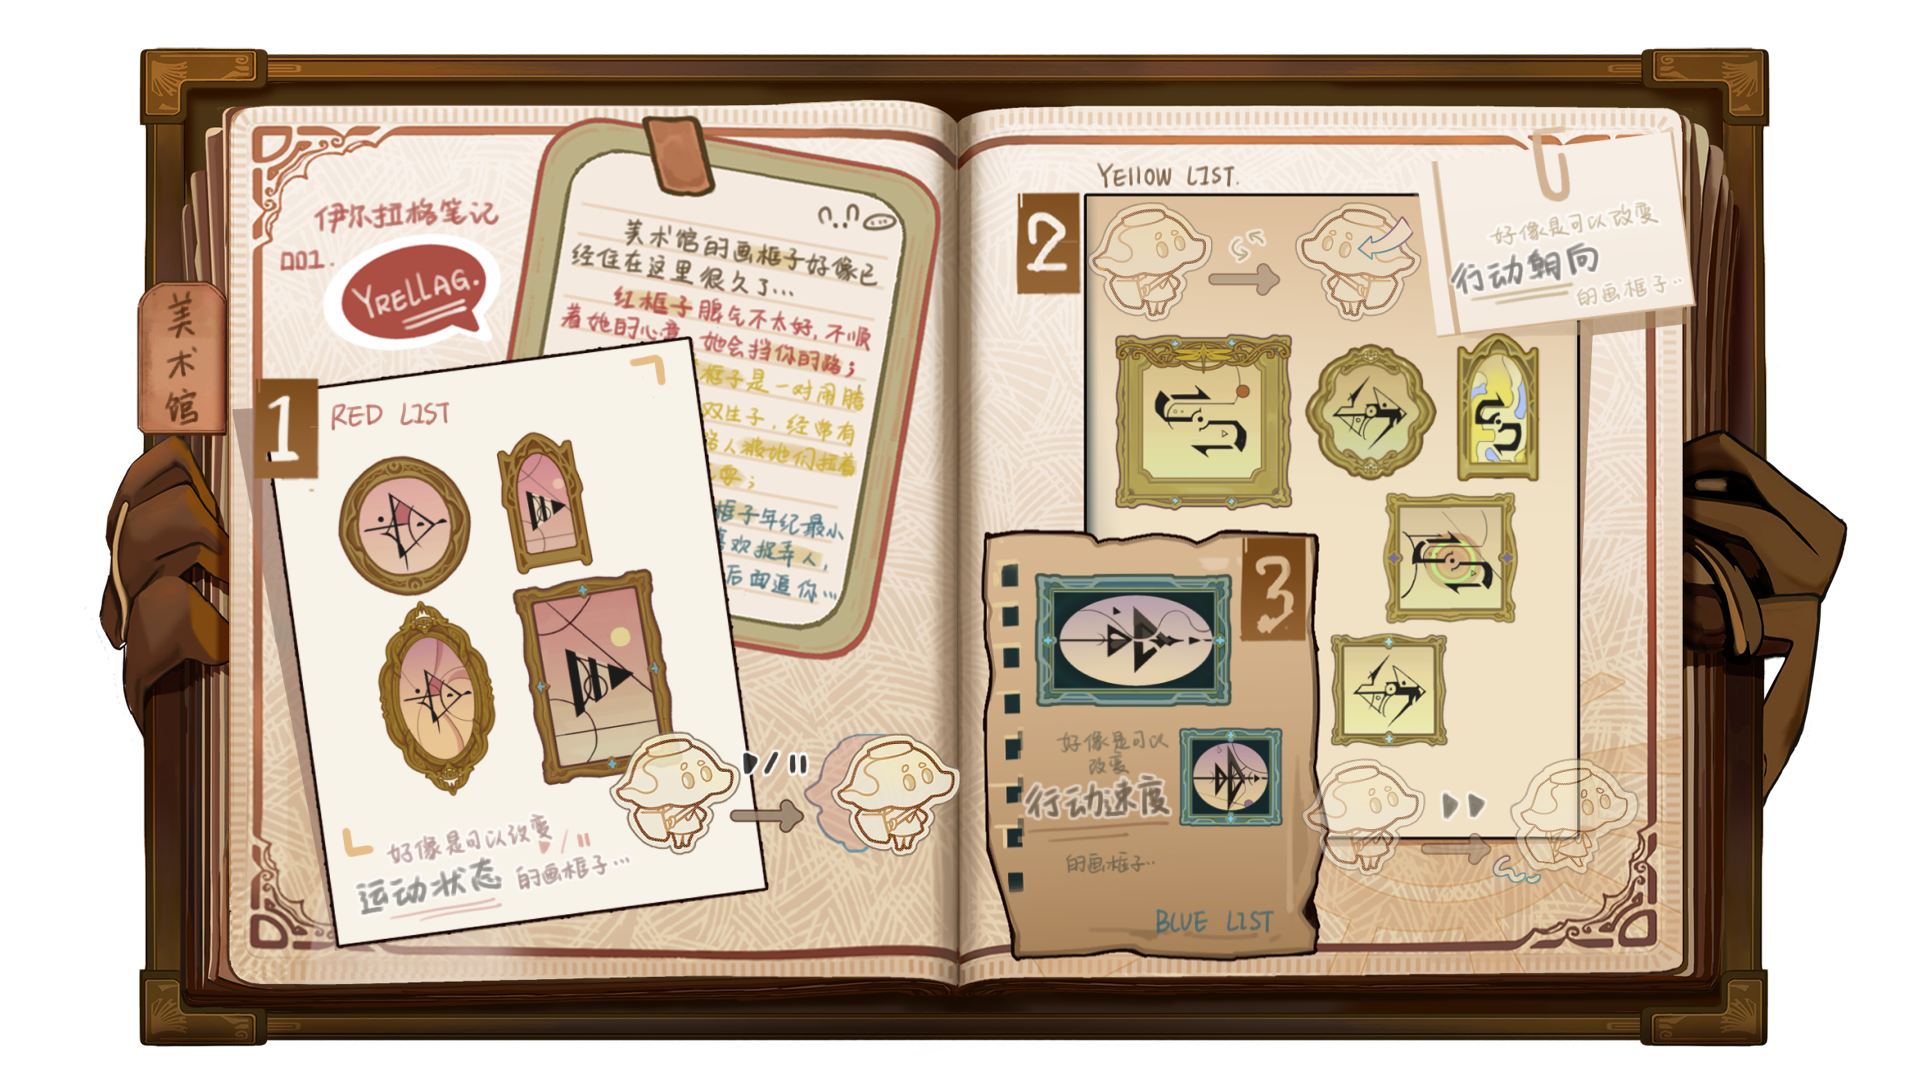 伊尔拉格笔记
001.
YRELLAG.
美术馆
美术馆的画框子好像已
经住在这里很久了...
红框子脾气不太好,不顺
着她的心意,她会挡你的路;
框子是一对闹腾
双生子,经常有
路人被她们拉着
框子年纪最小
喜欢捉弄人,
后面追你...
1
RED LIST
好像是可以改变
运动状态 的画框子...
2
YELLOW LIST.
好像是可以改变
行动朝向
的画框子..
3
好像是可以
改变
行动速度
的画框子..
BLUE LIST